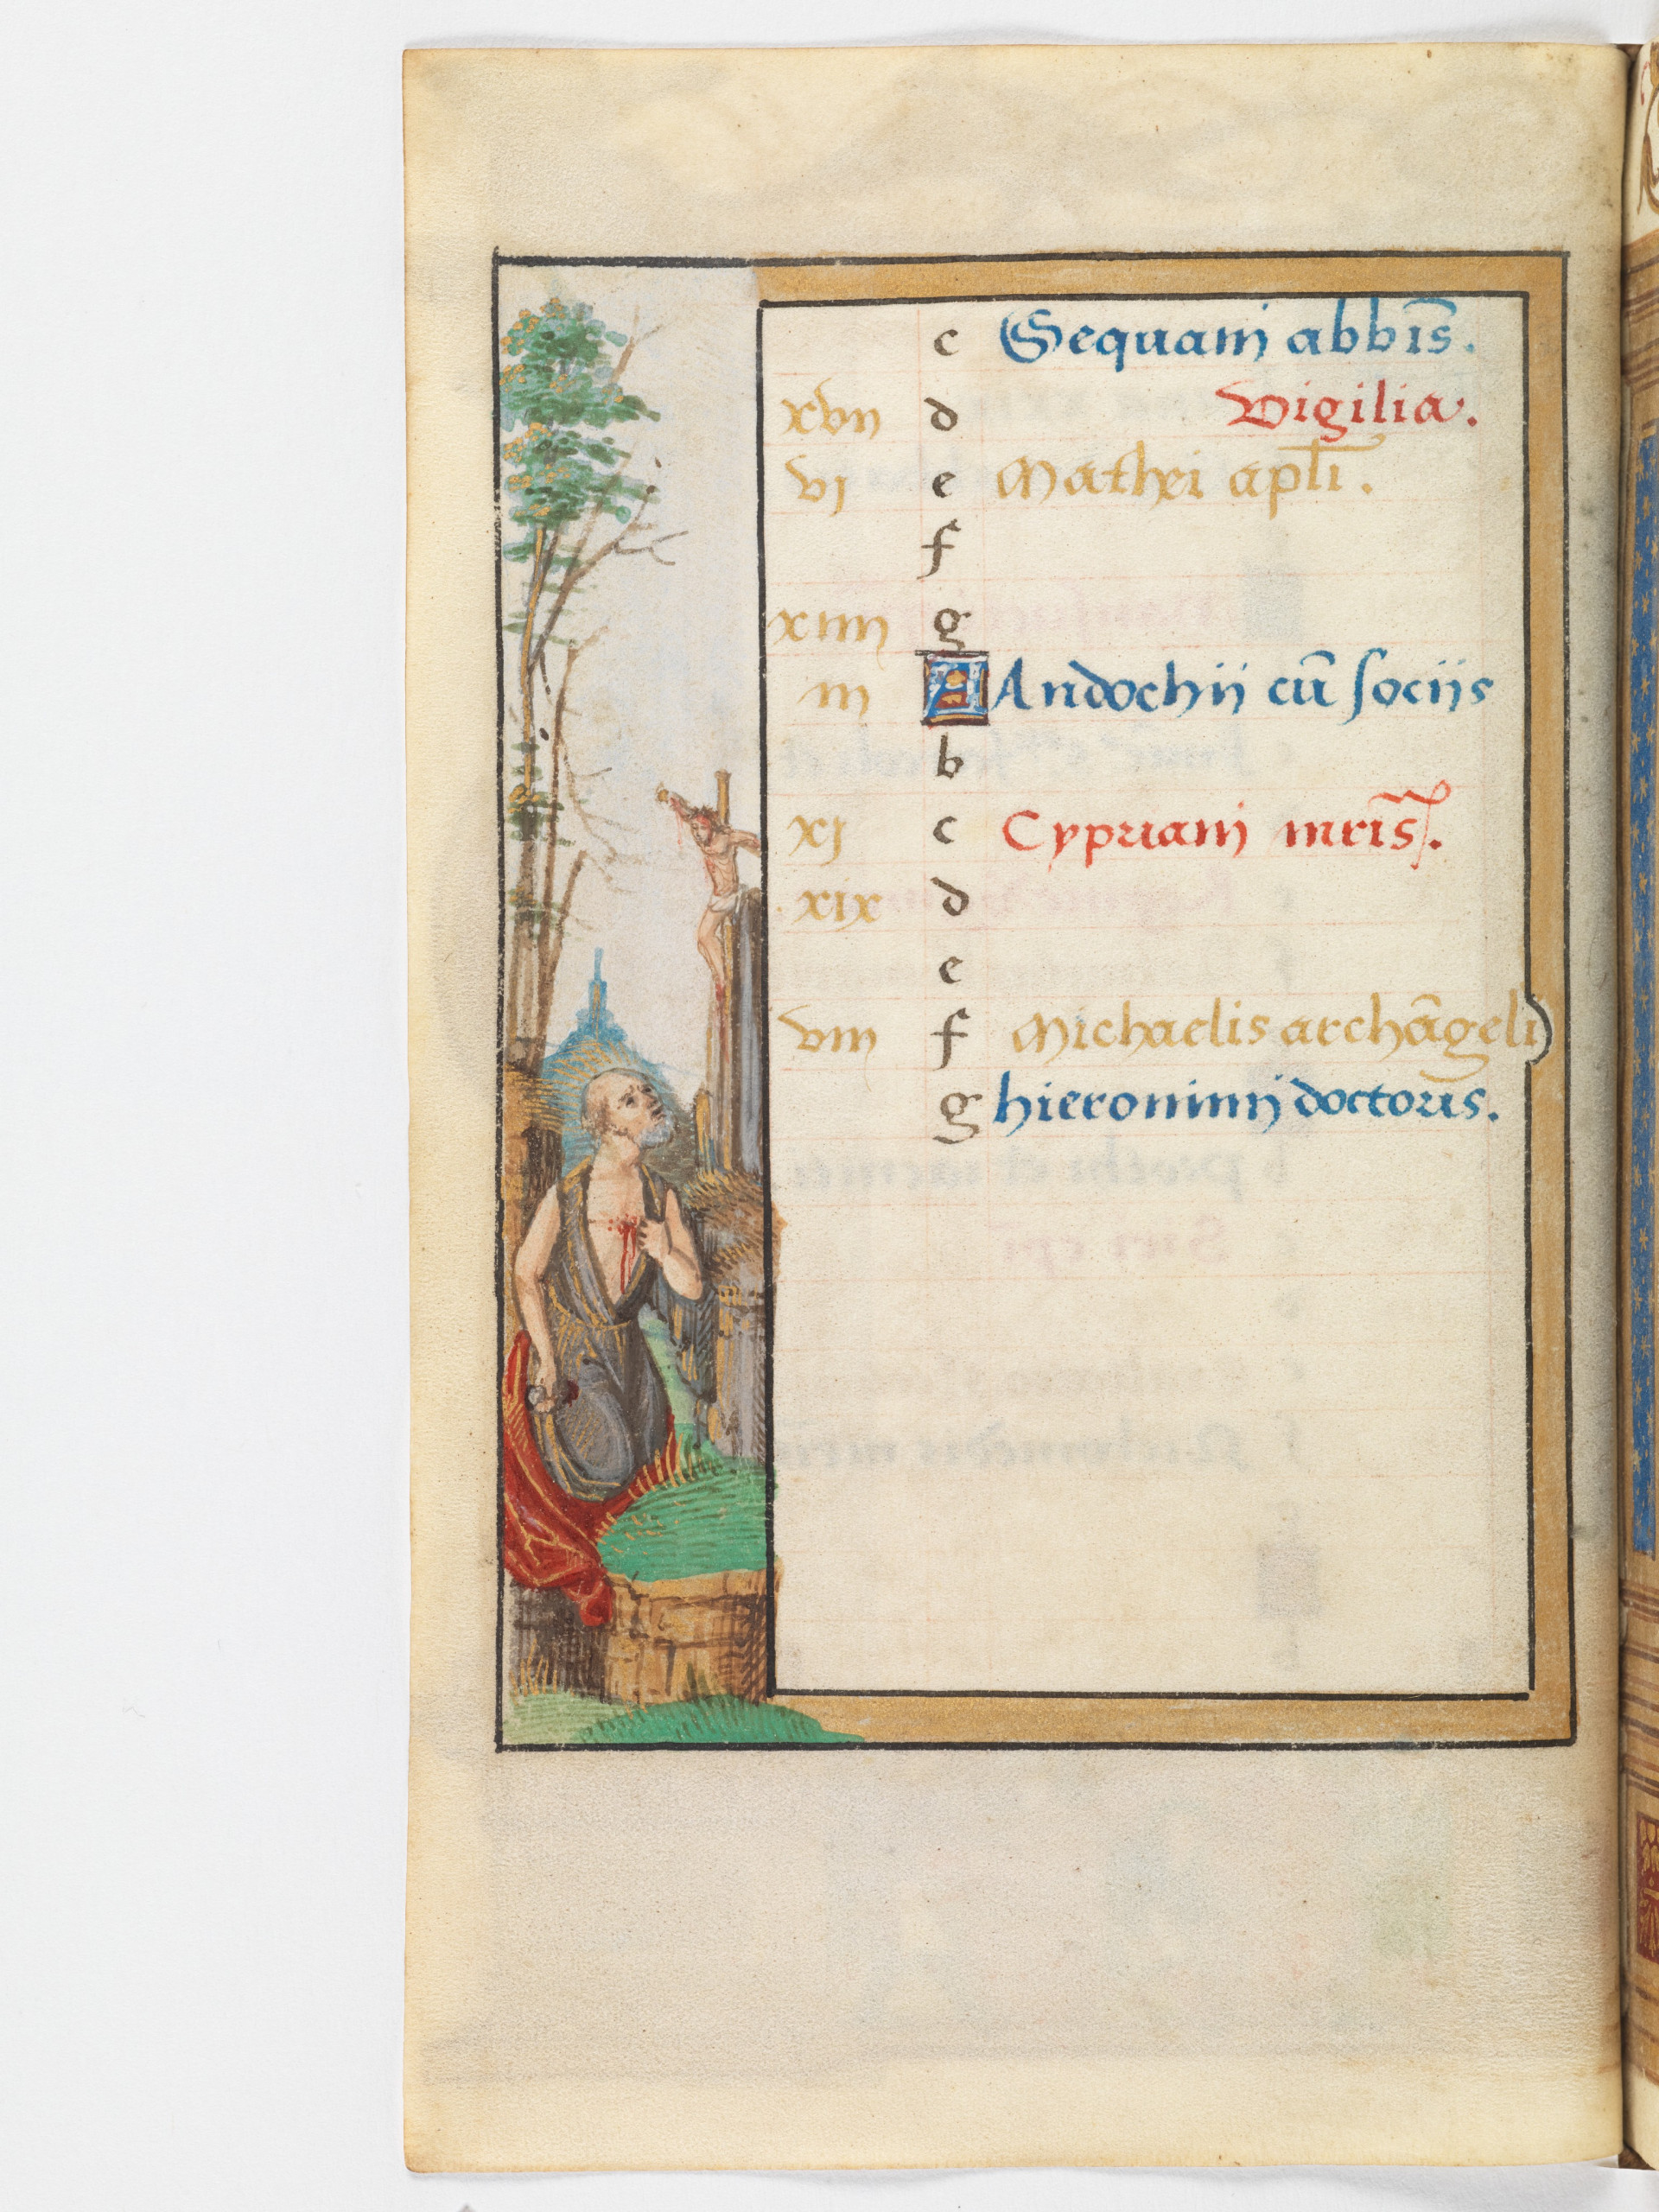 c Sequani abbīs.
xvii d Vigilia.
vi e Mathei aplī.
f
xiiii g
iii A Andochii cū sociis
b
xi c Cypriani mrīs.
xix d
e
viii f Michaelis archāgeli
g hieronimi doctoris.